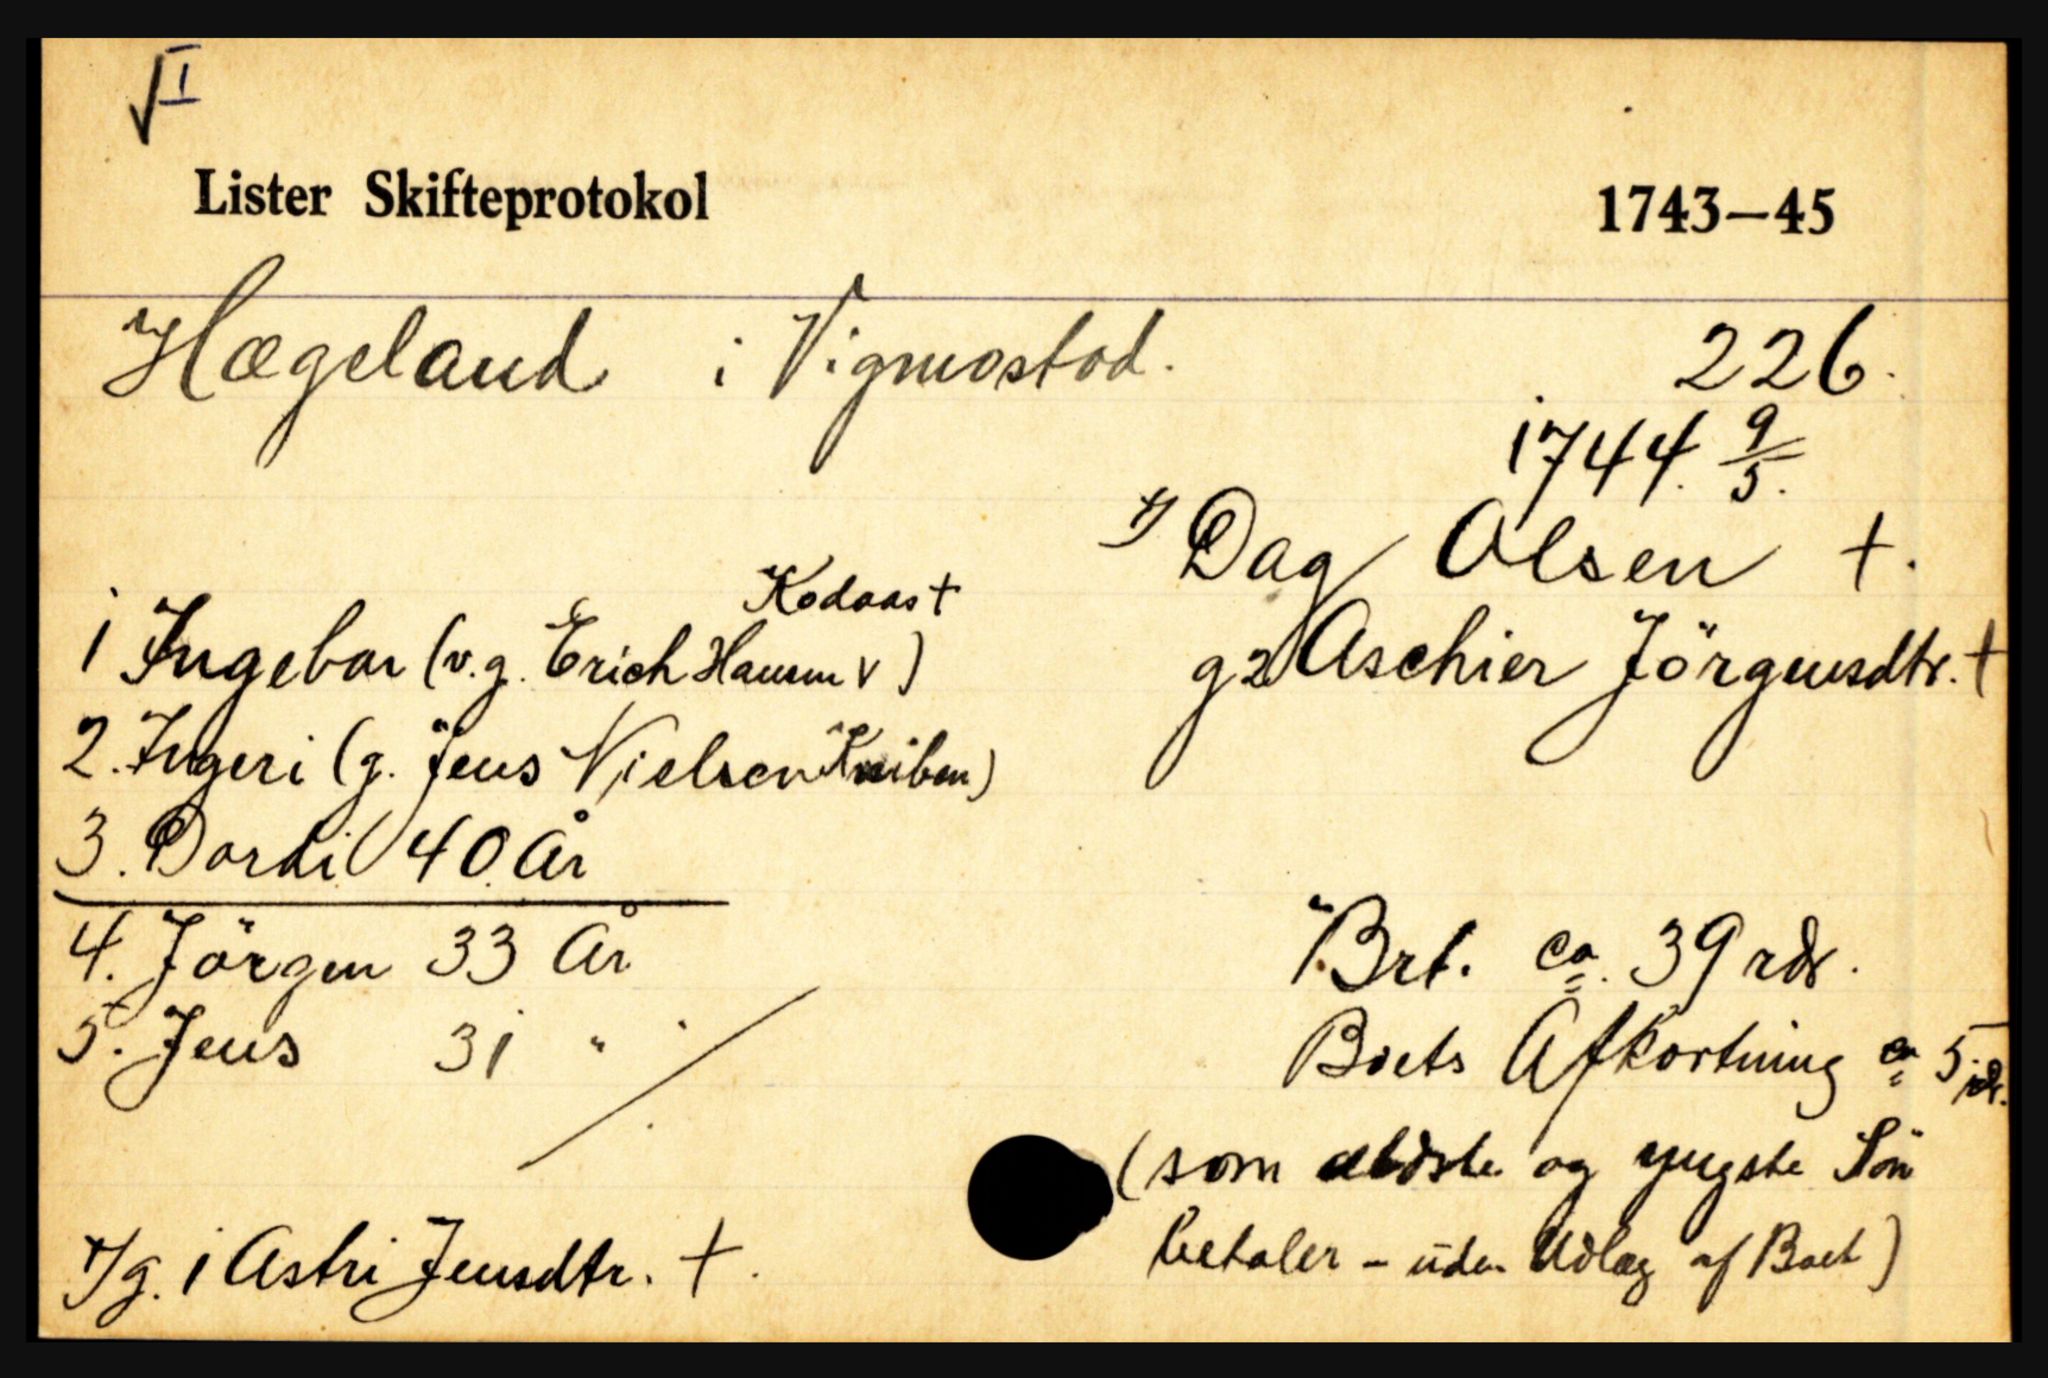 √I
Lister Skifteprotokol 1743–45
Hægeland i Vigmostad. 226.
1744. 9/5.
*/ Dag Olsen †.
g2 Aschier Jörgensdtr. †
Kodaas †
1 Ingebor (v.g. Erich Hansen v)
2. Ingeri (g. Jens Nielsen Kniben)
3. Dorthi 40 År
4. Jörgen 33 År
5. Jens 31 "
Brt. ca. 39 rdr.
Boets Afkortning ca 5 rdr.
(som ældste og yngste Sön
betaler – uden Udlæg af Boet)
*/ g. 1 Astri Jensdtr. †.